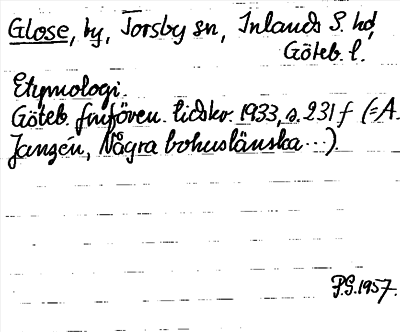 Glose, by, Torsby sn, Inlands S. hd,
Göteb. l.
Etymologi.
Göteb. fmfören. tidskr. 1933, s. 231 f (=A.
Janzén, Några bohuslänska...).
P.G. 1957.